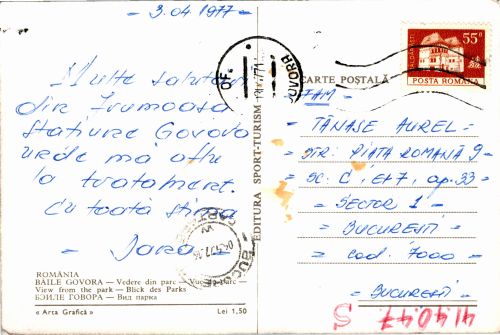 - 3.04.1977 -
Multe salutari
din frumoasa
stațiune Govora
unde mă aflu
la tratament.
Cu toată stima
ROMÂNIA
BĂILE GOVORA — Vedere din parc —
View from the park — Blick des Parks
БЭИЛЕ ГОВОРА — Вид парка
« Arta Grafică » Lei 1,50
EDITURA SPORT-TURISM
OF.
GOVORA
55
POSTA ROMANA
CARTE POȘTALĂ
- FAM -
- TĂNASE AUREL -
- STR. PIAȚA ROMANĂ 9 -
- SC. C, ET 7, ap. 33 -
- SECTOR 1 -
- BUCUREȘTI -
- Cod. 7000 -
- BUCUREȘTI -